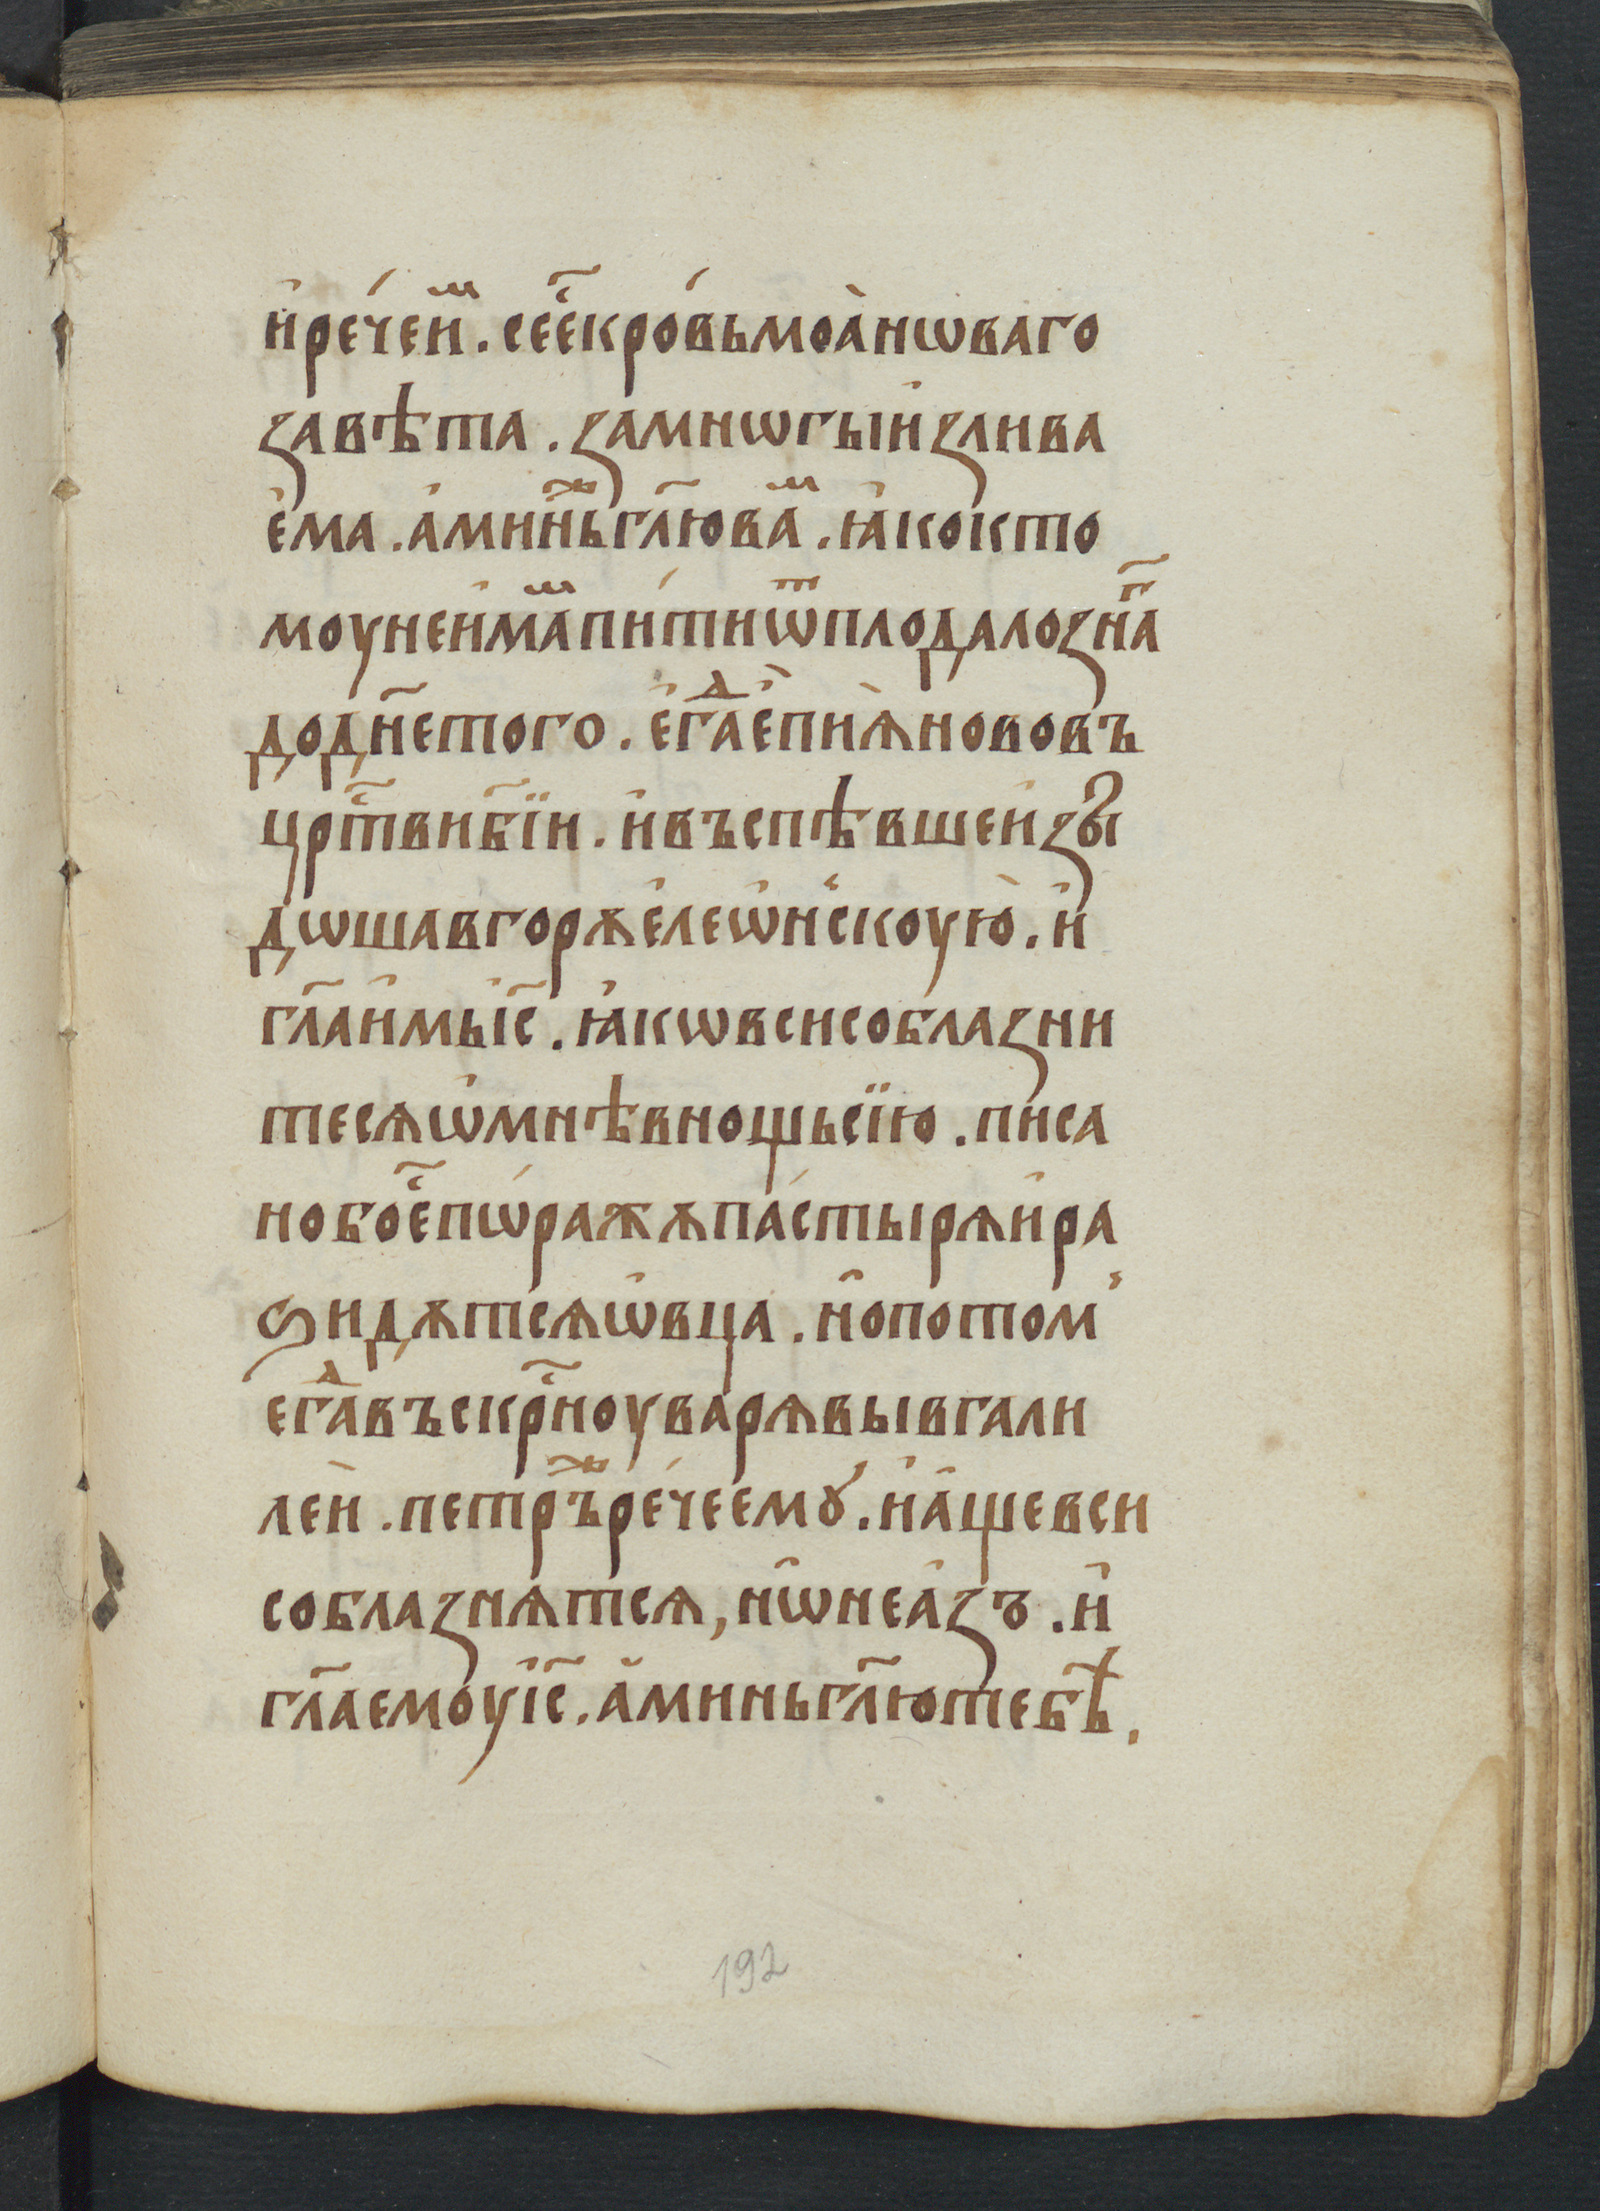 и҆ рече́ и҆ⷨ . се е҆с҃ кро́вь моа̀ нѡваго
завѣта . за мнѡгы и҆злива
е҆ма . а҆минⷤь гл҃ю ваⷨ . ꙗ҆ко к томоу
моу не и҆маⷨ пи́ти ѿ плода лозн҃а
до дн҃е того . е҆гⷣа е҆ пиѧ̀ ново въ
црⷭ҇тви бж҃їи . и҆ въспѣвше и҆зы
дѡша в горѫ е҆леѡ҆нⷭскоую̀ . и҆
гл҃а и҆мь і҆с҃ . ꙗ҆кѡ вси соблазни
тесѧ ѡ҆ мнѣ в нощь сїю . писа
но бо е҆ⷭ҇ пѡражѫ па́стырѧ и҆ ра
ꙃидѫтсѧ ѡ҆вца . но потом꙽
егⷣа въскрⷭ҇ноу варѧ вы в гали
леи̇ . петрⷤъ ре́че емꙋ́ . и҆ а҆ще вси
соблазнѧтсѧ , нѡ не а҆зъ . и҆
гл҃а емоу і҆с҃ . а҆минь гл҃ю тебѣ .
192